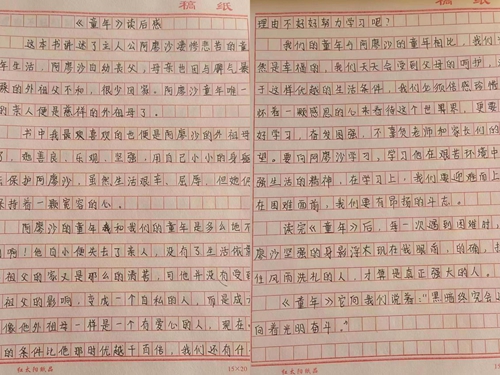 稿 纸
《童年》读后感
这本书讲述了主人公阿廖沙凄惨悲苦的童
年生活,阿廖沙自幼丧父,母亲也因与脾气暴
躁的外祖父不和,很少回家,阿廖沙童年唯一
的亲人便是慈祥的外祖母了。
书中我最喜欢的也便是阿廖沙的外祖母
了,她善良、乐观、坚强,用自己小小的身躯
去保护阿廖沙,虽然生活艰辛、屈辱,但她仍
保持着一颗宽容的心。
阿廖沙的童年和我们的童年是多么地不
同啊!他自小便失去了亲人,没有了生活依靠
祖父的家又是那么的清苦,可他并没有受到
祖父的影响,变成一个自私的人,而是成
像他外祖母一样是一个有爱心的人,现在
的条件比他那时优越千百倍,我们还有什
红太阳纸品
15×20
稿 纸
理由不好好努力学习呢?
我们的童年与阿廖沙的童年相比,我们
然是幸福的,我们天天会受到父母的呵护,
于这样优越的生活条件,我们必须倍感珍惜
怀着一颗感恩的心来看待这个世界,更要
好学习,奋发图强,不辜负老师和家长们的
望。要向阿廖沙学习,学习他在艰苦环境中
强生活的精神,在学习上,我们要迎难而上
在困难面前,我们要有昂扬的斗志。
读完《童年》后,每一次遇到困难时,
廖沙坚强的身影浮大现在我眼前,的确,
住风雨洗礼的人,才算是真正强大的人。
《童年》它向我们说着:"黑暗终究会
向着光明奋斗。"
红太阳纸品